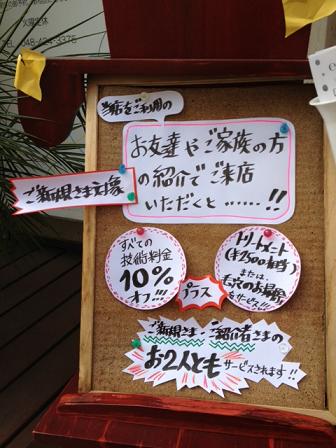 TEL 048-424-3375
当店をご利用の
お友達やご家族の方
の紹介でご来店
いただくと……!!
ご新規さま対象
すべての
技術料金
10%
オフ!!!
プラス
トリートメント
(¥2500相当)
または
毛穴のお掃除
をサービス!!!
ご新規さま・ご紹介者さまの
お2人とも サービスされます!!